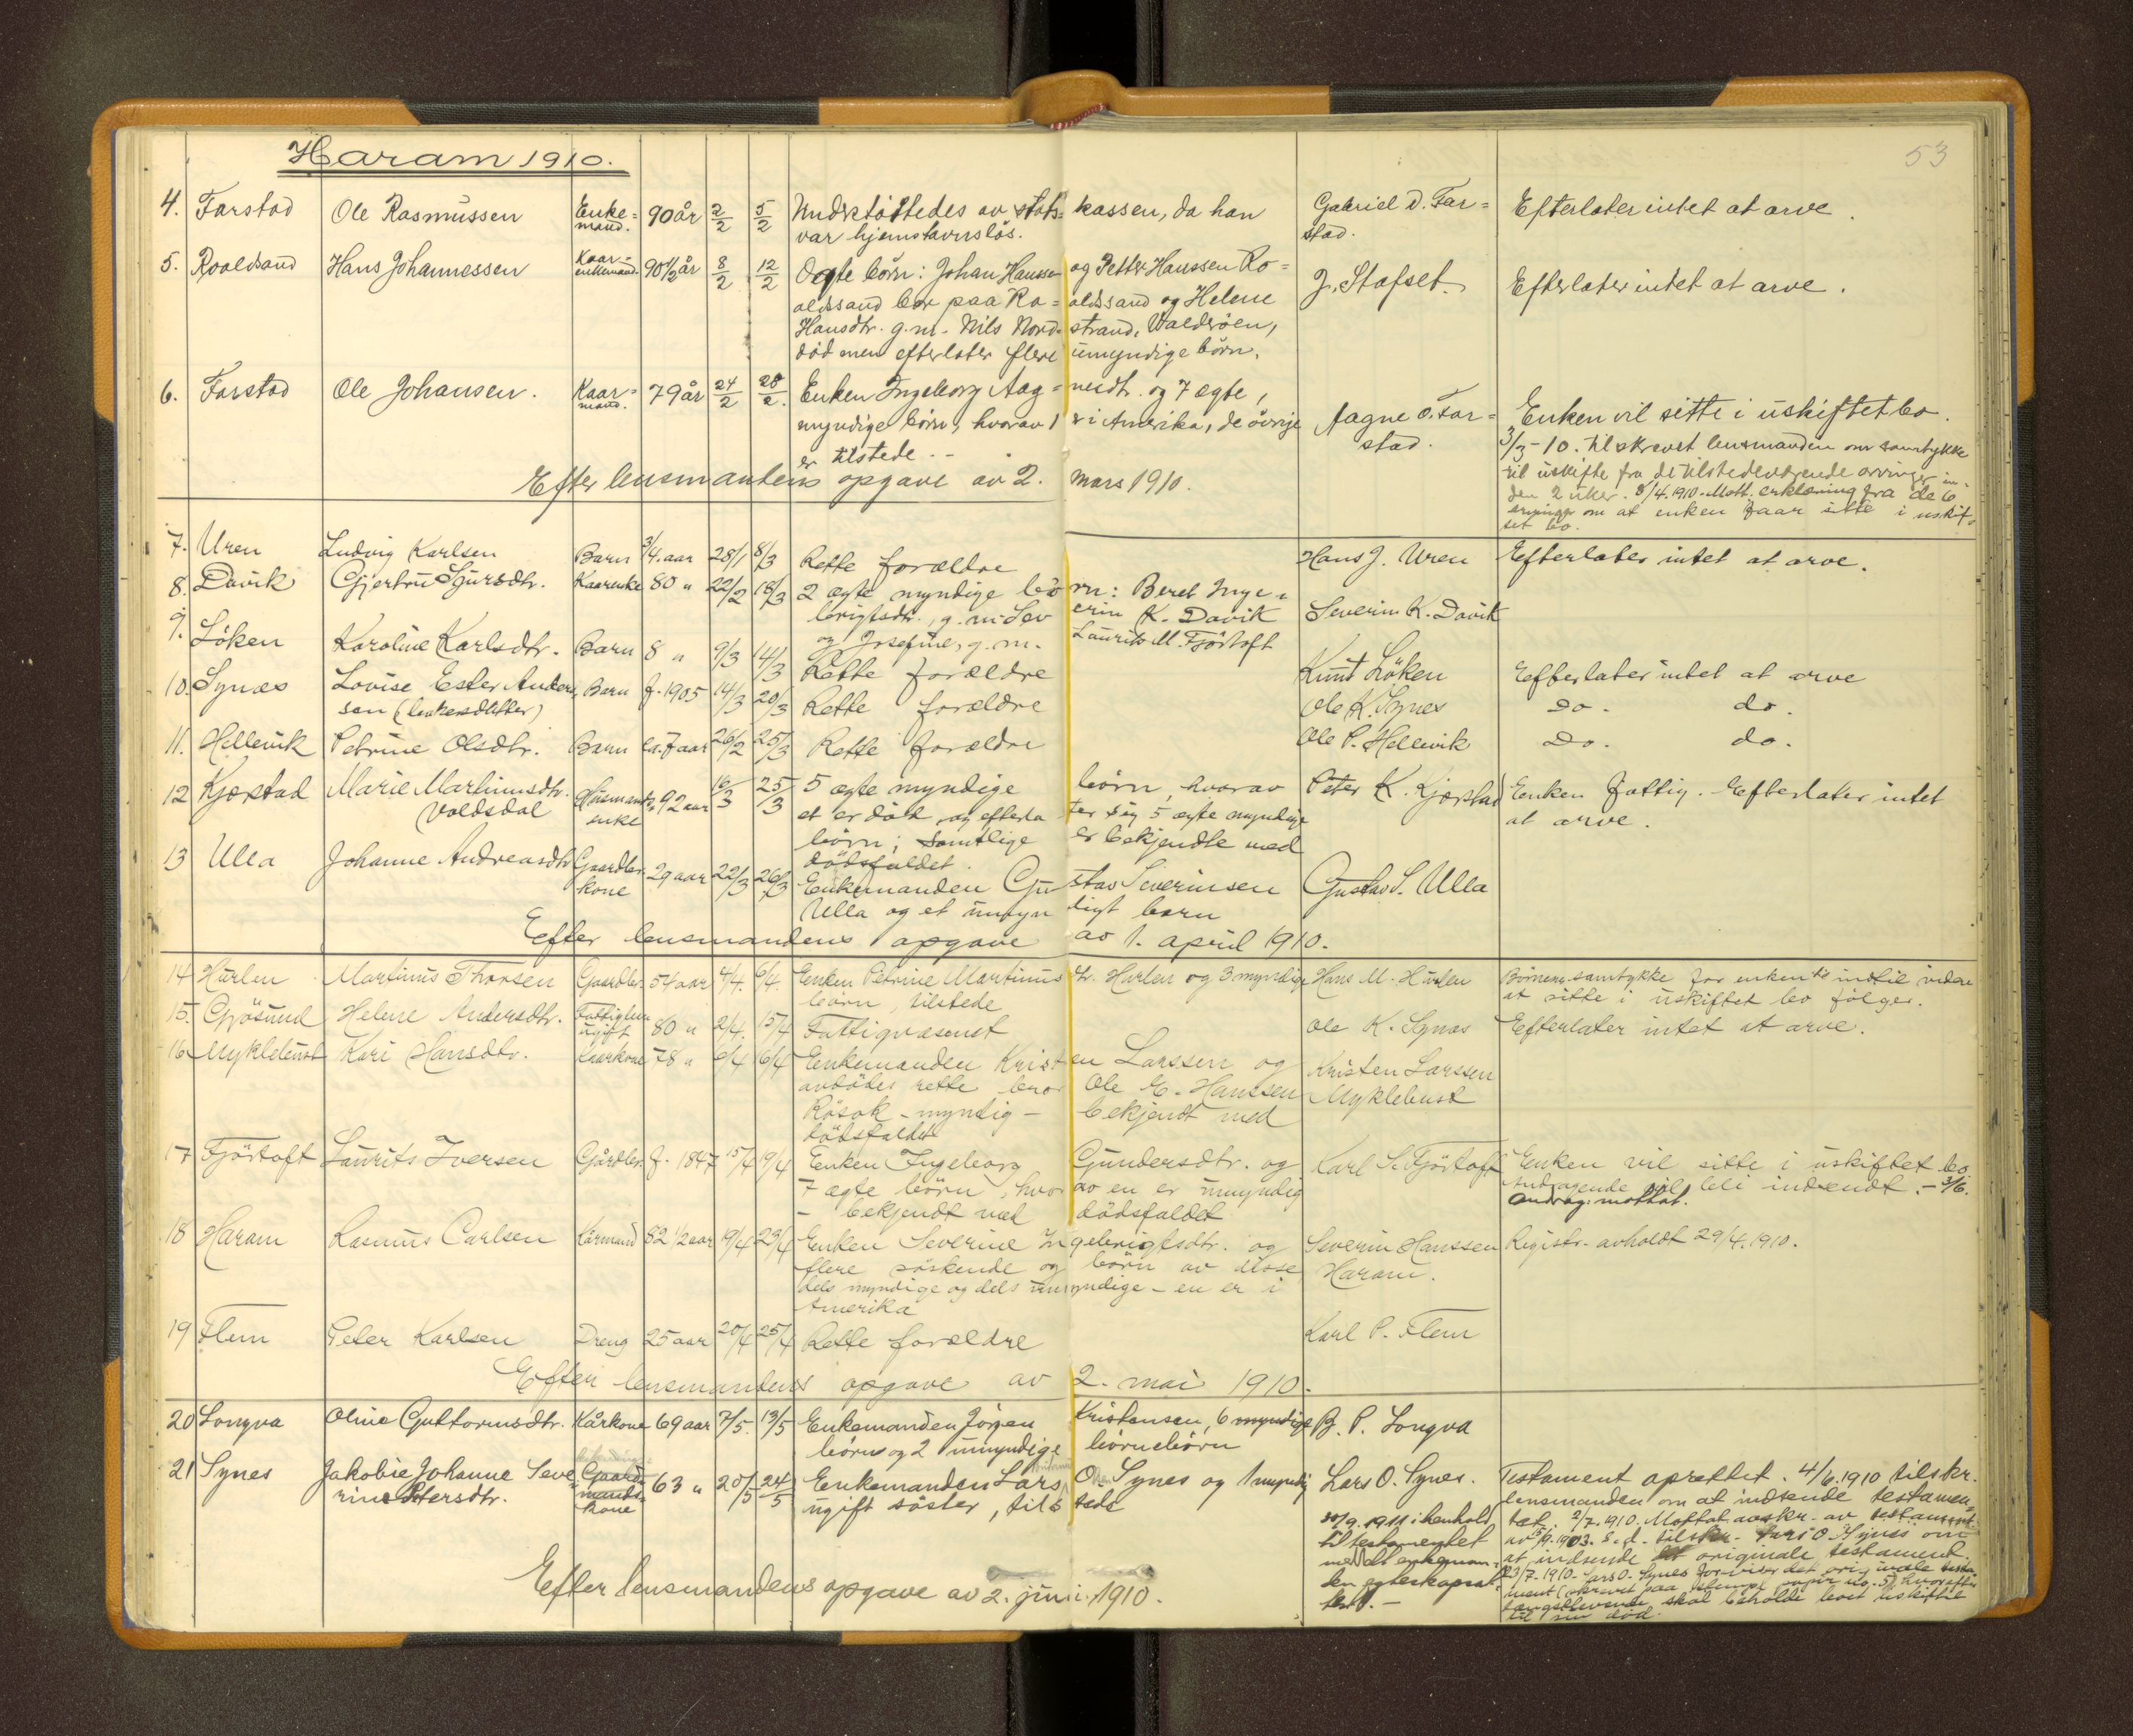 Haram 1910.
53
4. Farstad Ole Rasmussen Enke= mand. 90 år 2/2 5/2 Understöttedes av stats= kassen, da han Gabriel D. Far= Efterlater intet at arve.
var hjemstavnslös. stad.
5. Roaldsand Hans Johannessen Kaar= enkemand. 90 1/2 år 8/2 12/2 Ægte börn: Johan Hanssen og Petter Hanssen Ro= J. Stafset. Efterlater intet at arve.
aldssand bor paa Ro= aldssand og Helene
Hansdtr. g.m. Nils Nord= strand, Valderöen,
död men efterlater flere umyndige börn.
6. Farstad Ole Johansen. Kaar= mand. 79 år 24/2 28/2. Enken Ingeborg Aag= nesdtr. og 7 ægte, Aagne O. Far= Enken vil sitte i uskiftet bo.
myndige börn, hvorav 1 er i Amerika, de övrige stad. 3/3-10. Tilskrevet lensmanden om samtykke
er tilstede. - til uskifte fra de tilstedeværende arvinger in-
Efter lensmandens opgave av 2. mars 1910. den 2 uker. 8/4.1910. Mott. erklæring fra de 6
arvinger om at enken faar sitte i uskif-
tet bo.
7. Uren Ludvig Karlsen Barn 3/4 aar 28/1 8/3 Rette forældre Hans J. Uren Efterlater intet at arve.
8. Davik Gjertru Sjursdtr. Kaarenke 80 " 22/2 18/3 2 ægte myndige börn: Beret Inge= Severin K. Davik
brigtsdtr., g.m. Severin K. Davik
og Josefine, g.m. Laurits M. Fjörtoft
9. Löken Karoline Karlsdtr. Barn 8 " 9/3 14/3 Rette forældre Knut Löken Efterlater intet at arve
10. Synes Lovise Ester Ander= Barn f. 1905 14/3 20/3 Rette forældre Ole K. Synes do. do.
sen
11. Hellevik Petrine Olsdtr. Barn ca. 7 aar 26/2 25/3 Rette forældre Ole P. Hellevik do. do.
12 Kjerstad Marie Martinusdtr. Husmands= enke 92 aar 16/3 25/3 5 ægte myndige börn, hvorav Peter K. Kjerstad Enken fattig. Efterlater intet
Voldsdal et er död og efterla ter sig 5 ægte myndige at arve.
börn; samtlige er bekjendte med
dödsfaldet.
13 Ulla Johanne Andreasdtr Gaardbr. kone 29 aar 22/3 26/3 Enkemanden Gustav Severinsen Gustav S. Ulla
Ulla og et umyndigt barn
Efter lensmandens opgave av 1. april 1910.
14 Hurlen Martinus Thorsen Gaardbr. 54 aar 4/4. 6/4. Enken Petrine Martinusdtr. Hurlen og 3 myndige Hans M. Hurlen Börnenes samtykke for enken til indtil videre
börn, tilstede at sitte i uskiftet bo følger.
15. Gjösund Helene Andersdtr. Fattiglem ugift 80 " 2/4. 15/4 Fattigvæsenet Ole K. Synes Efterlater intet at arve.
16 Myklebust Kari Hansdtr. Kaarkone 78 " 6/4 16/4 Enkemanden Kristen Larssen og Kristen Larssen
avdödes rette bror Ole E. Hanssen Myklebust
Rösok - myndig - bekjendt med
dödsfaldet
17 Fjörtoft Laurits Iversen Gårdbr. f. 1847 15/4 19/4 Enken Ingeborg Gundersdtr. og Karl S. Fjörtoft Enken vil sitte i uskiftet bo
7 ægte börn, hvorav en er umyndig Andragende vil bli indsendt. - 3/6.
- bekjendt med dödsfaldet andrag. mottat.
18 Haram Rasmus Carlsen Kårmand 82 1/2 aar 19/4 23/4 Enken Severine Ingebrigtsdtr. og Severin Hanssen Registr. avholdt 29/4.1910.
flere söskende og börn av disse Haram.
dels myndige og dels umyndige - en er i
Amerika
19 Flem Peter Karlsen Dreng 25 aar 20/4 25/4 Rette forældre Karl P. Flem
Efter lensmandens opgave av 2. mai 1910.
20 Longva Oline Guttormsdtr. Kårkone 69 aar 7/5. 13/5 Enkemanden Jörgen Kristensen, 6 myndige B. P. Longva
börn og 2 umyndige börnebörn
21 Synes Jakobie Johanne Seve= Gaard= mands= kone 63 " 20/5 24/5 Enkemanden Lars O. Synes og 1 myndig Lars O. Synes. Testament oprettet. 4/6.1910 tilskr.
rine Petersdtr. ugift söster, tilstede lensmanden om at indsende testamen=
30/9.1911 i henhold tet. 2/7.1910. Mottat avskr. av testament
til testamentet av 15/9.1903. S.d. tilskr. Lars O. Synes om
meddelt enkeman= at indsende det originale testament.
den 23/7.1910. Lars O. Synes forviser det originale testa=
ment (skrevet paa stempl. papir no. 5), hvorefter
længstlevende skal beholde boet uskiftet
til sin död.
Efter lensmandens opgave av 2. juni 1910.